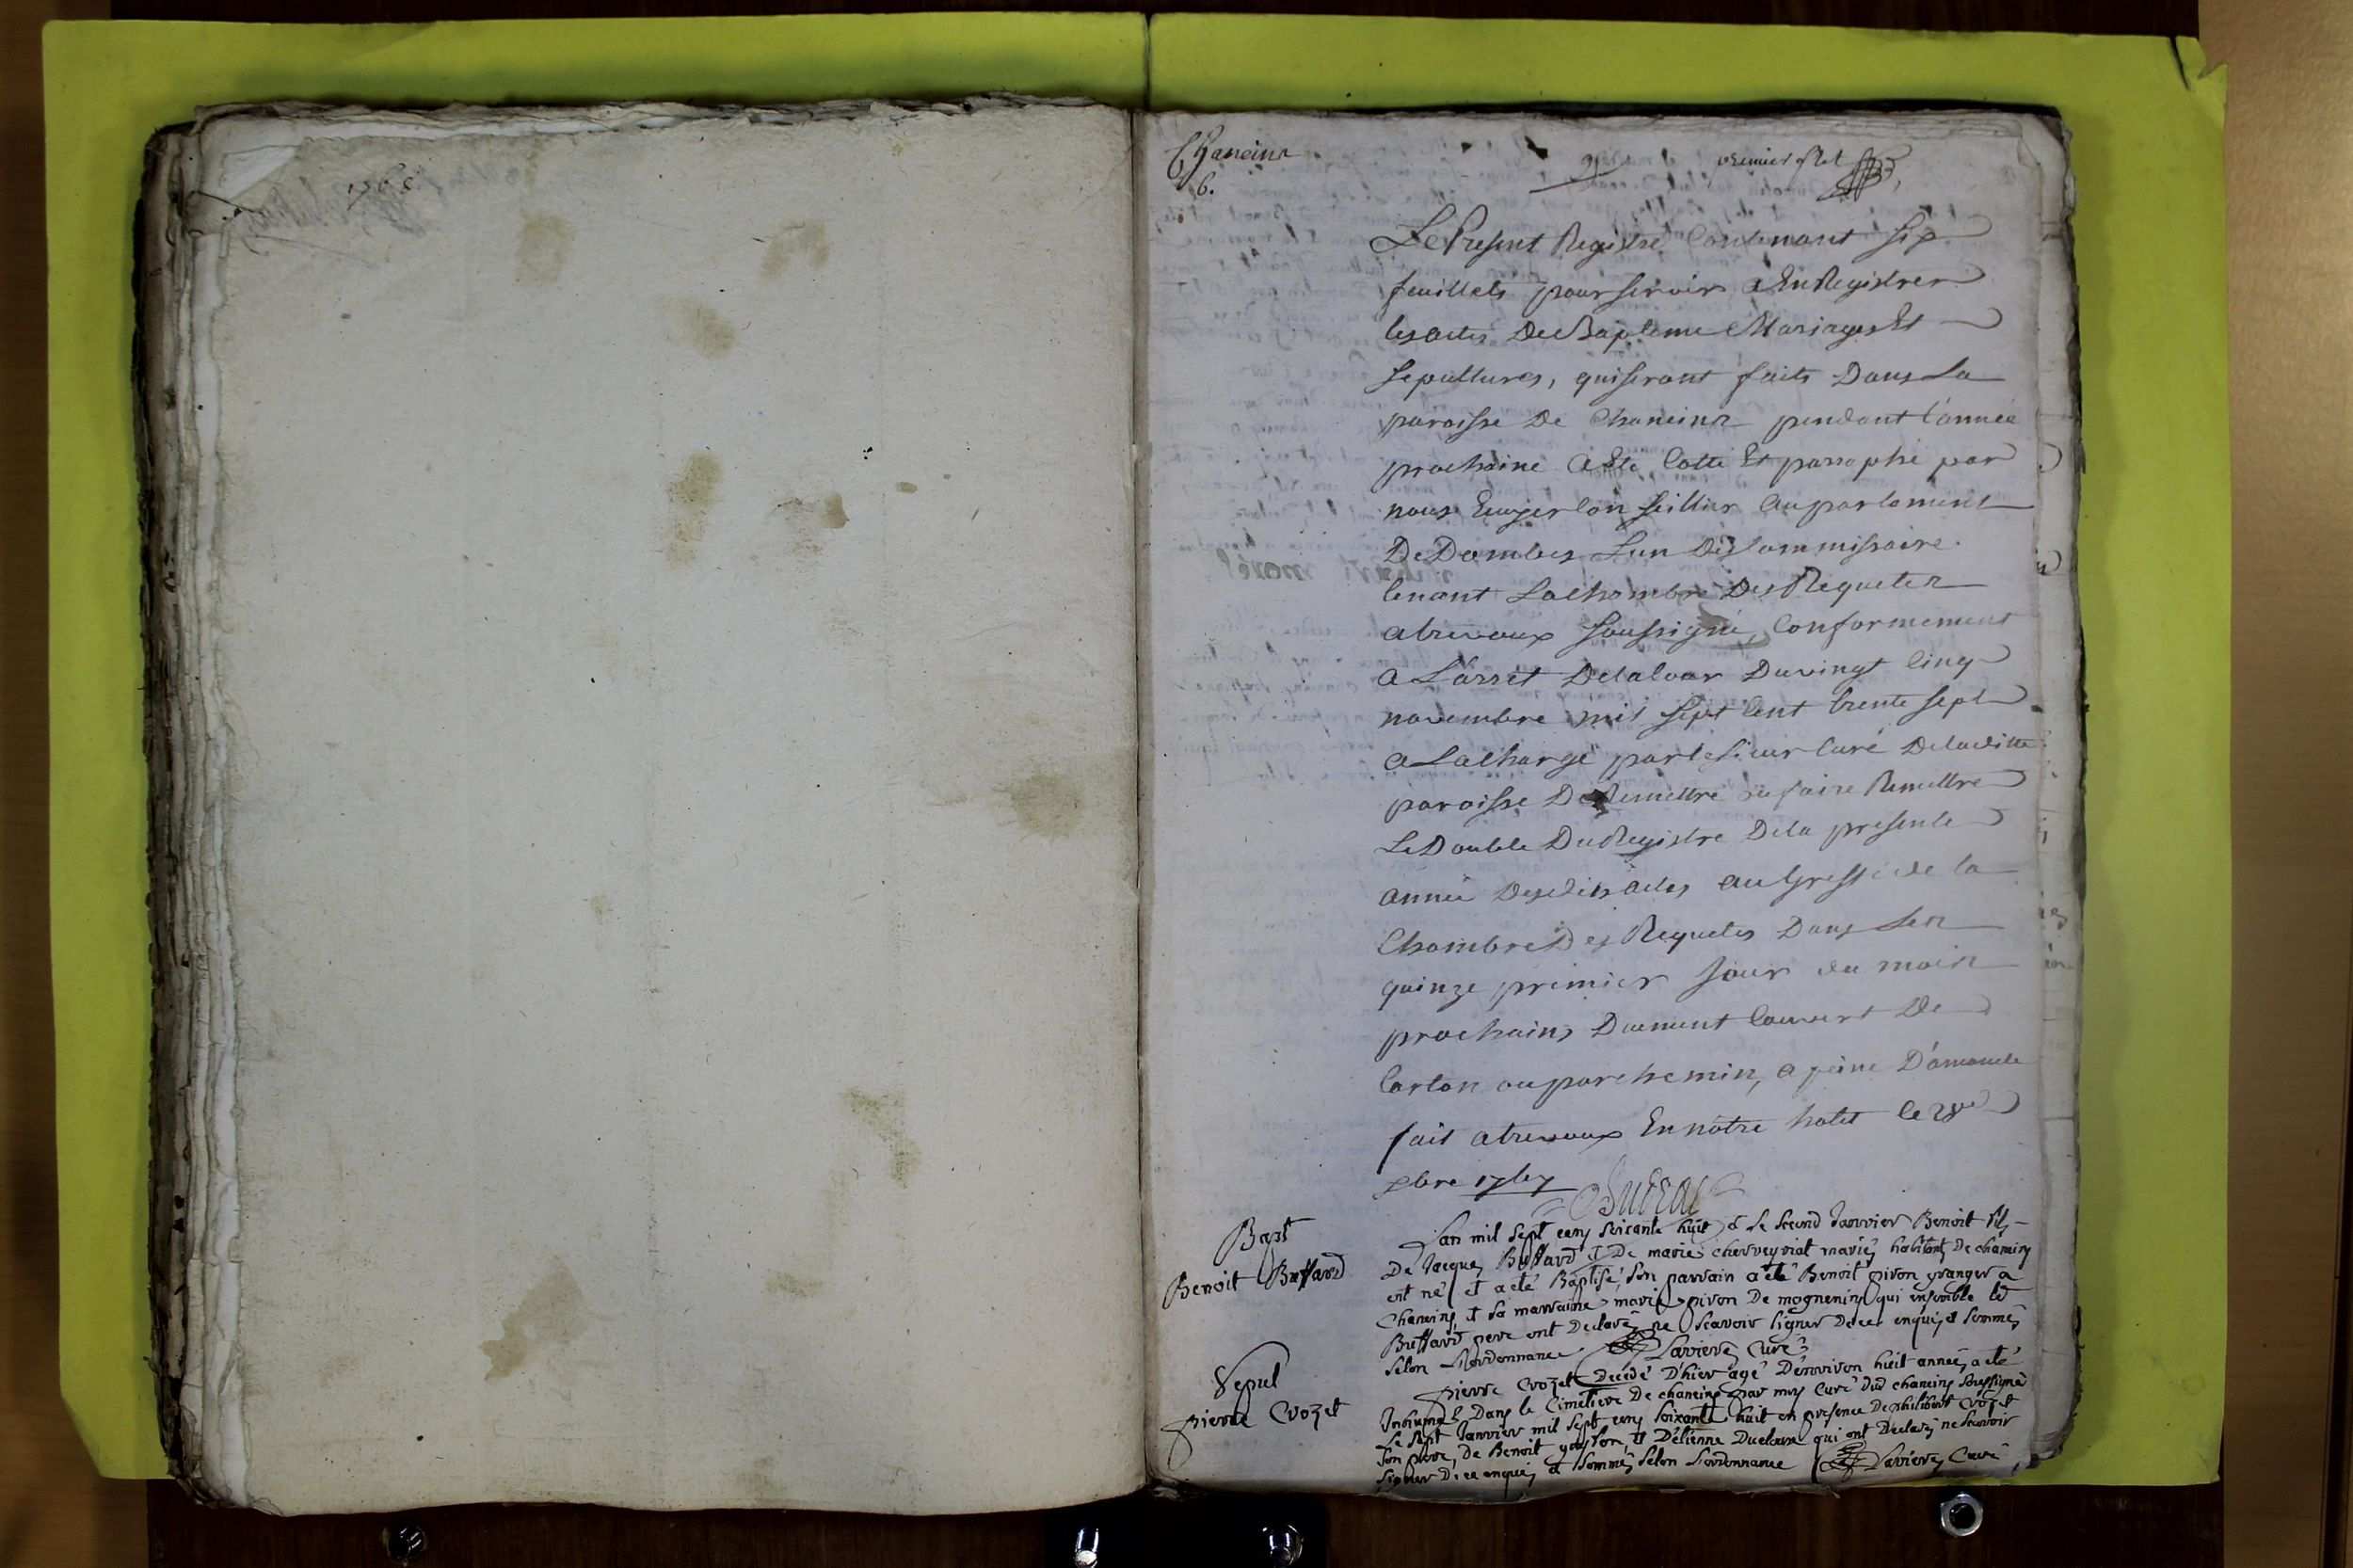 1768
Chaneins
6.
premier folet
Le Present Registre Contenant six
feuillets pour servir a EnRegistrer
les actes De Bapteme Mariages Et
sepultures, qui seront faits Dans La
paroisse De Chaneins pendant l'année
prochaine a Eté Cotté Et parraphé par
nous Conseillier au parlement
De Dombes L'un Des Commissaire
tenant La chambre Des Requetes
a trevoux soussigné, Conformement
a L'arrêt De la Cour Du vingt Cinq
novembre mil sept Cent trente sept
a La charge par le sieur Curé De la ditte
paroisse De Remettre ou faire Remettre
Le Double Du Registre De la presente
année Des dits actes au Greffe de la
Chambre Des Requetes Dans Les
quinze premier Jour du mois
prochains Duement Couvert De
Carton ou parchemin, a peine D'amande
fait a trevoux En nôtre hotel le 28e
xbre 1767
Bapt
Benoit Buffard
L'an mil sept cens soixante huit et Le second Janvier Benoit fils
De Jacques Buffard et De marie cherveyriat mariés habitants De chaneins
est né et a eté Baptisé, son parrain a eté Benoit pivon granger a
Chaneins, et sa marraine marie pivon De mogneneins qui ensemble le
Buffard pere ont Declarés ne scavoir signer De ce enquis et sommés
selon L'ordonnance Lavieres Curé
Sepul
pierre Crozet
pierre Crozet Decedé D'hier agé D'environ huit années a eté
Inhumé Dans le Cimetiere De chaneins par moy Curé Dud chaneins soussigné
Le sept Janvier mil sept cens soixante huit en presence De philibert Crozet
son pere, De Benoit et D'etienne qui ont Declarés ne scavoir
signer De ce enquis et sommés selon L'ordonnance Lavieres Curé